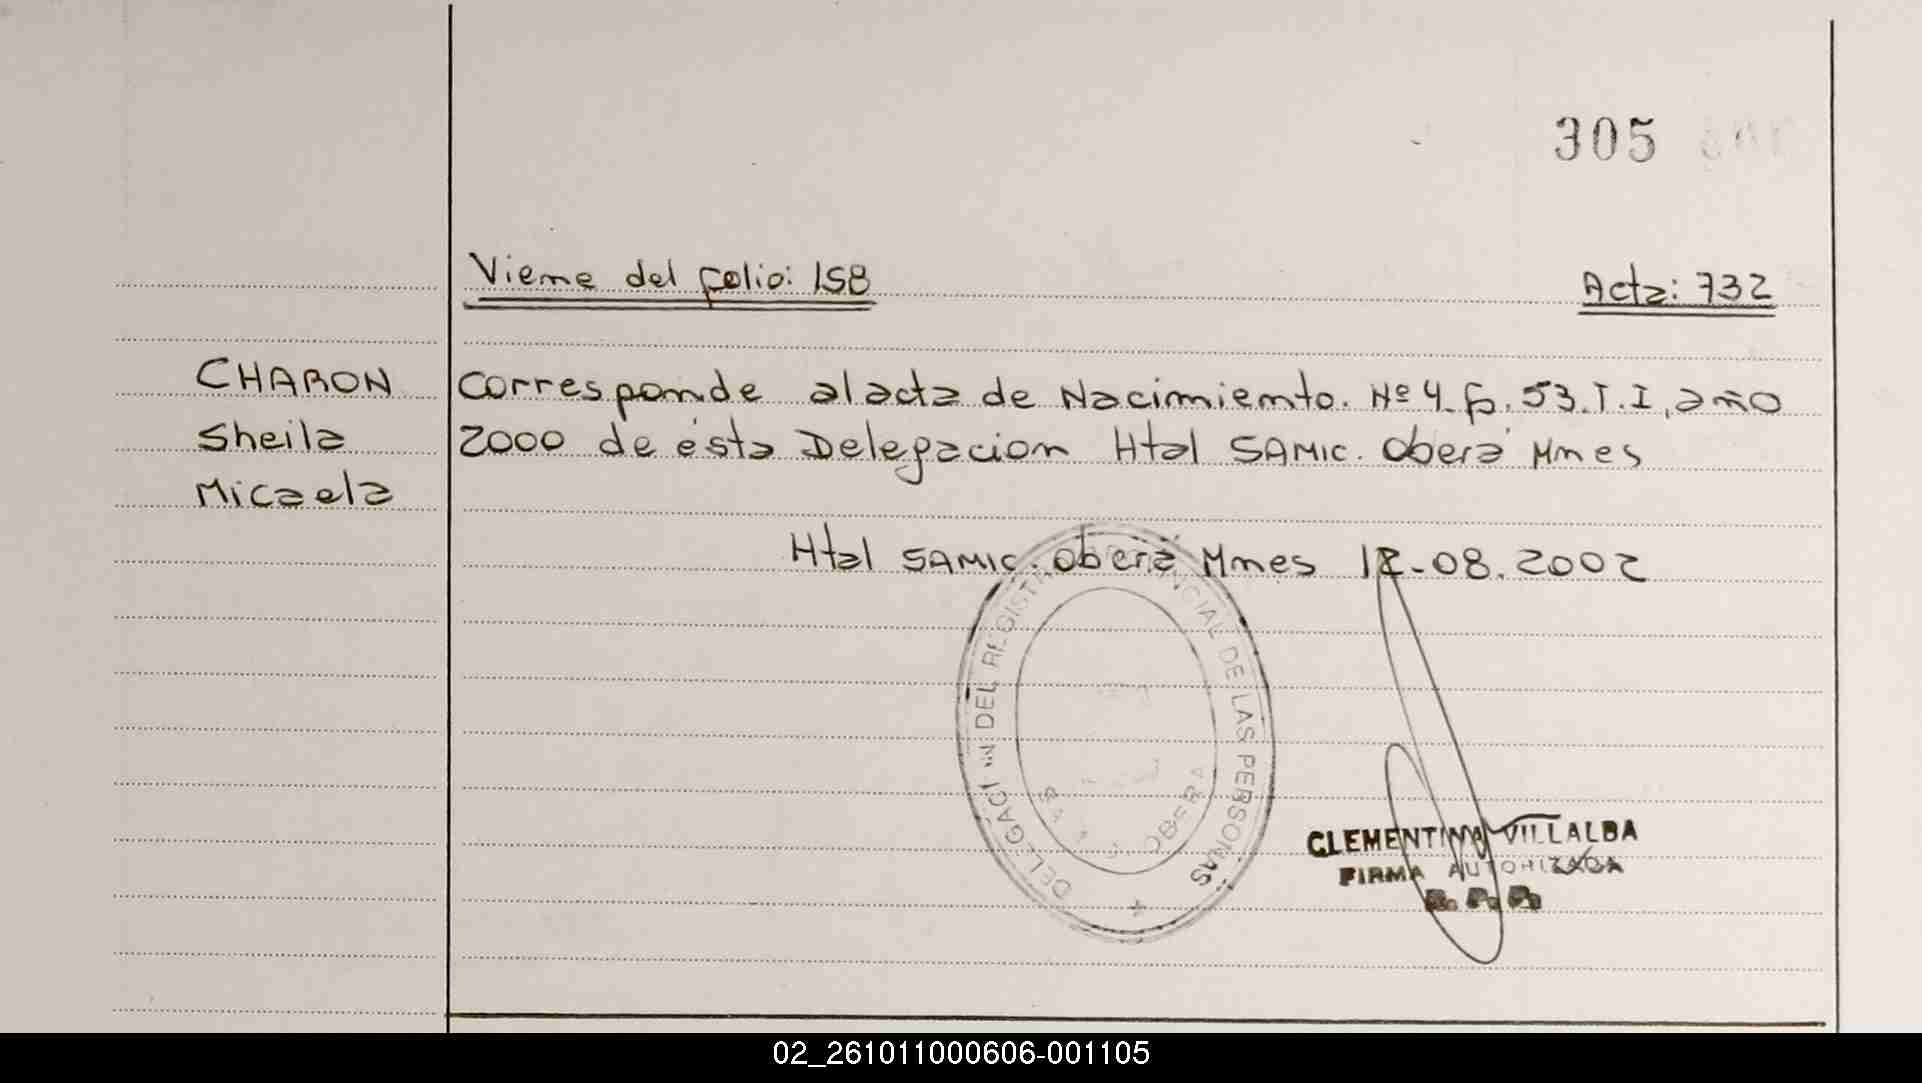 305
Viene del folio: 158
Acta: 732
CHARON
Sheila
Micaela
Corresponde al acta de Nacimiento. Nº 4. fo. 53. T. I, año
2000 de ésta Delegacion Htal SAMIC. Oberá Mnes
Htal SAMIC. Oberá Mnes 12-08.2002
DEL REGIST NCIAL DE LAS PERSONAS
OBERA
CLEMENTINA VILLALBA
FIRMA AUTORIZADA
R. P. P.
02_261011000606-001105